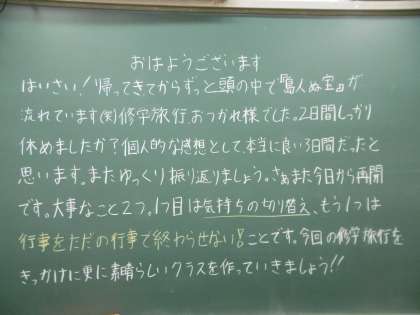 おはようございます
はいさい！帰ってきてからずっと頭の中で『島人ぬ宝』が
流れています(笑)修学旅行、おつかれ様でした。2日間しっかり
休めましたか？個人的な感想として、本当に良い3日間だったと
思います。またゆっくり振り返りましょう。さぁまた今日から再開
です。大事なこと2つ。1つ目は気持ちの切り替え、もう1つは
行事をただの行事で終わらせない！ことです。今回の修学旅行を
きっかけに更に素晴らしいクラスを作っていきましょう!!